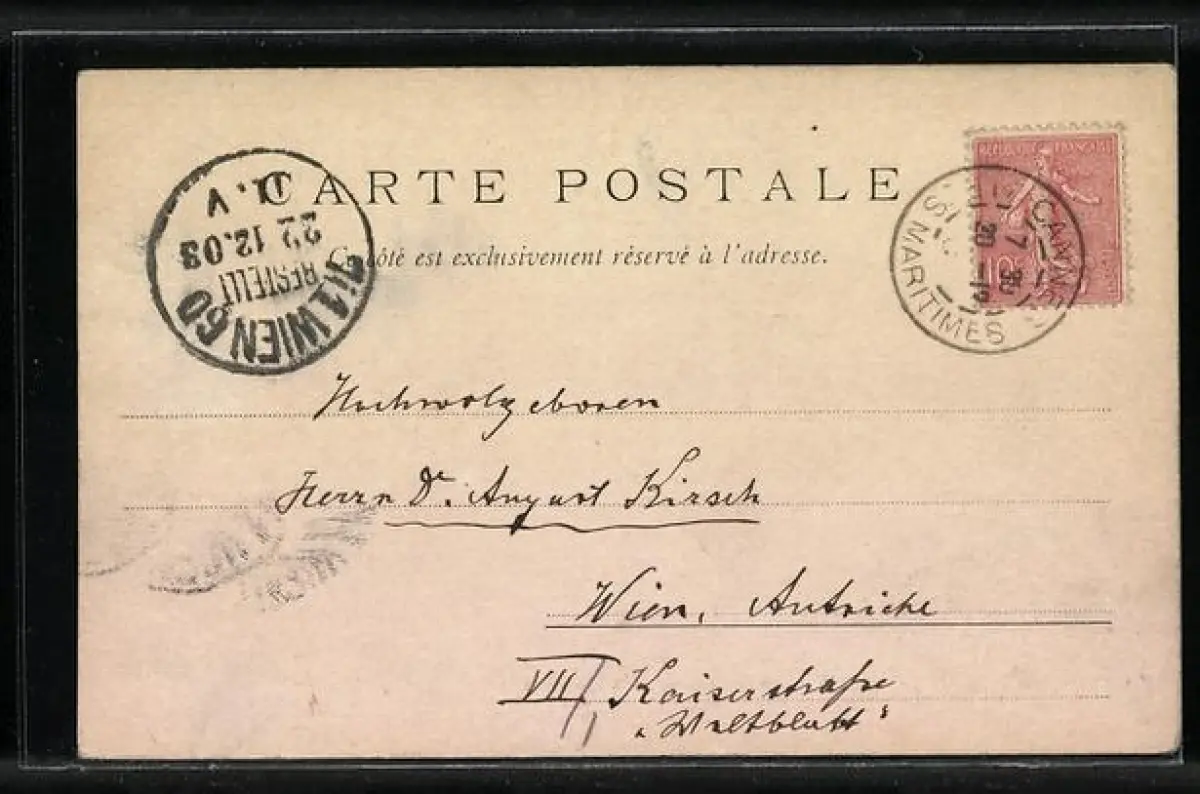 CARTE POSTALE
Ce côté est exclusivement réservé à l'adresse.
REPUBLIQUE FRANÇAISE
CANNES
MARITIMES
7/1 WIEN 60
BESTELLT
22.12.03
V
Hochwolgeboren
Herrn Dr. August Kirsch
Wien, Autriche
VII/1 Kaiserstraße
"Weltblatt"